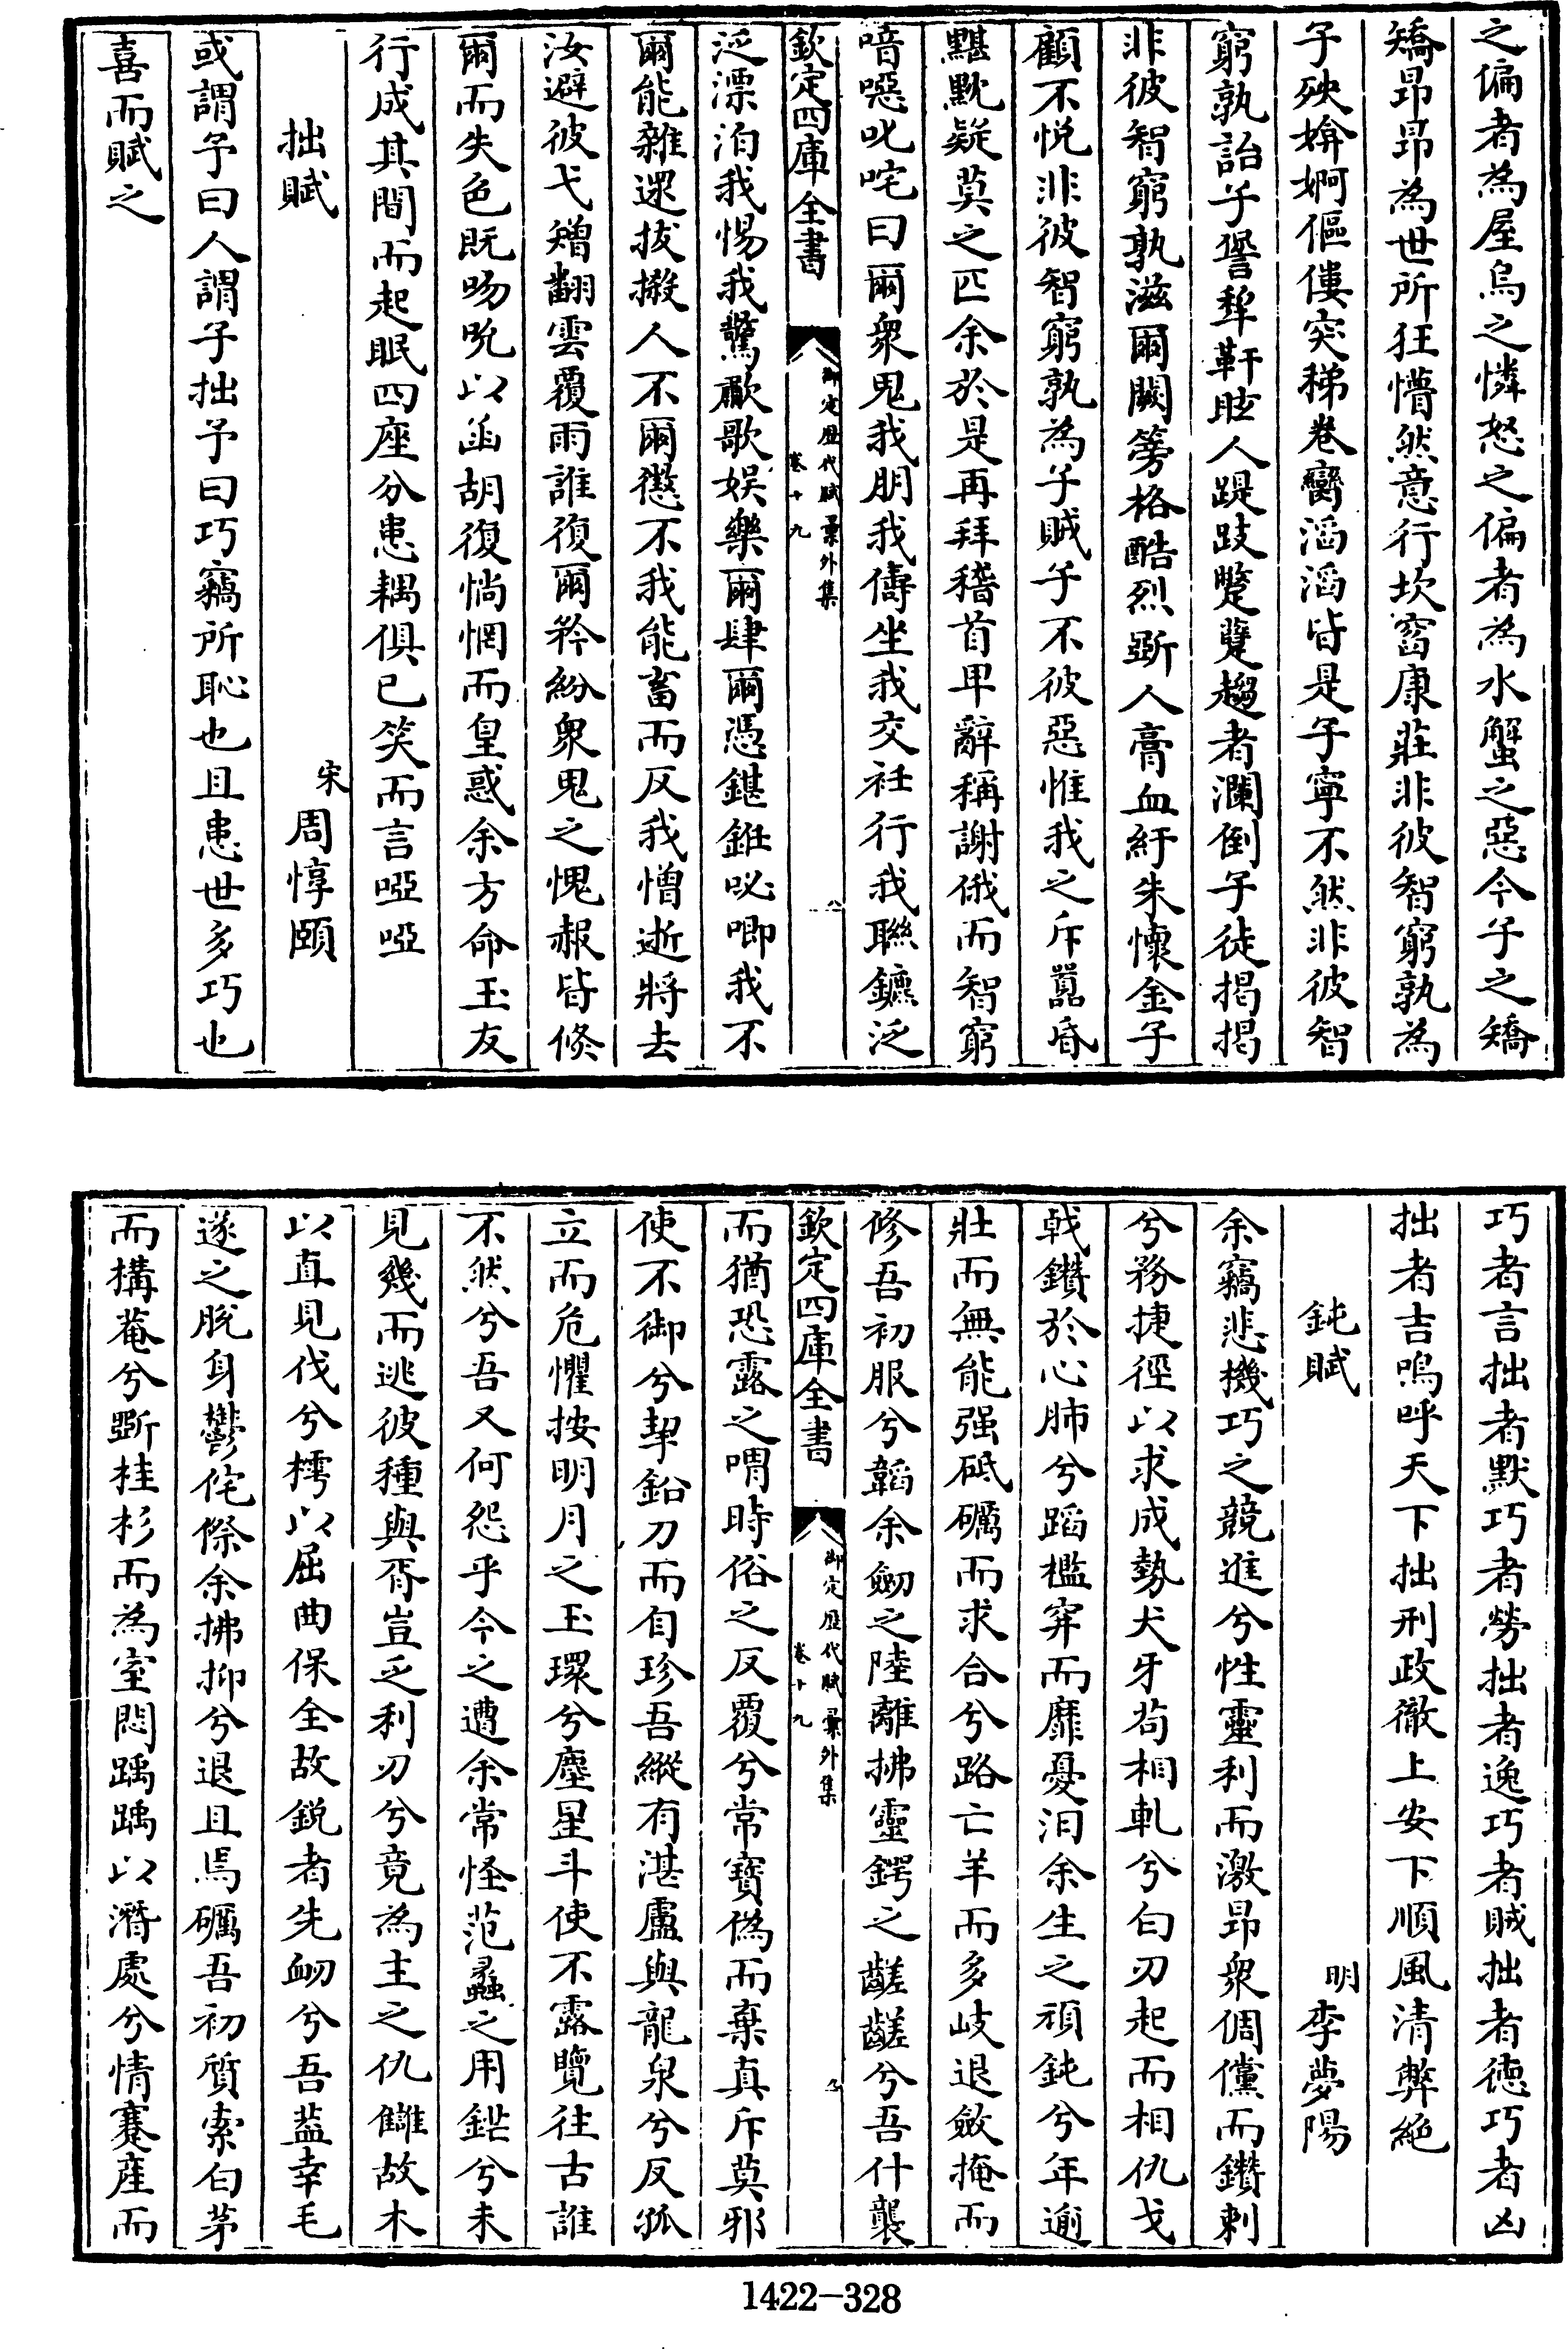 之偏者為屋烏之憐怒之偏者為水蟹之惡今子之矯
矯昂昂為世所狂懵然意行坎窞康莊非彼智窮孰為
子殃媕婀傴僂突稊卷臠滔滔皆是子寧不然非彼智
窮孰詒子譽犂靬眩人踶跂蹩躠趨者瀾倒子徒揭揭
非彼智窮孰滋爾闕篣格酷烈斲人膏血紆朱懷金子
顧不悦非彼智窮孰為子賊子不彼惡惟我之斥嚚昏
黮黕疑莫之匹余於是再拜稽首卑辭稱謝俄而智窮
喑噁叱咤曰爾衆鬼我朋我儔坐我交衽行我聯鑣泛
欽定四庫全書
御定歴代賦彙外集
卷十九
八
泛漂泊我惕我驚歗歌娱樂爾肆爾憑鍖銋咇唧我不
爾能雜遝拔擬人不爾懲不我能畜而反我憎逝將去
汝避彼弋矰翻雲覆雨誰復爾矜紛衆鬼之愧赧皆倏
爾而失色既吻吮以函胡復惝惘而皇惑余方命玉友
行成其間而起眠四座分患耦俱已笑而言啞啞
拙賦
宋周惇頤
或謂予曰人謂子拙予曰巧竊所恥也且患世多巧也
喜而賦之
巧者言拙者默巧者勞拙者逸巧者賊拙者德巧者凶
拙者吉嗚呼天下拙刑政徹上安下順風清弊絶
鈍賦
明李夢陽
余竊悲機巧之競進兮性靈利而激昂衆倜儻而鑽刺
兮務捷徑以求成勢犬牙苟相軋兮白刃起而相仇戈
戟鑽於心肺兮蹈檻穽而靡憂汨余生之頑鈍兮年逾
壯而無能强砥礪而求合兮路亡羊而多岐退斂掩而
修吾初服兮韜余劒之陸離拂靈鍔之齹齹兮吾什襲
欽定四庫全書
御定歴代賦彙外集
卷十九
九
而猶恐露之喟時俗之反覆兮常寶偽而棄真斥莫邪
使不御兮挈鉛刀而自珍吾縱有湛盧與龍泉兮反孤
立而危懼按明月之玉環兮塵星斗使不露覽往古誰
不然兮吾又何怨乎今之遭余常怪范蠡之用鋩兮未
見幾而逃彼種與胥豈乏利刃兮竟為主之仇讎故木
以直見伐兮樗以屈曲保全故鋭者先衂兮吾葢幸毛
遂之脱身鬱侘傺余拂抑兮退且焉礪吾初質索白茅
而構菴兮斲桂杉而為室悶踽踽以潛處兮情蹇産而
1422—328